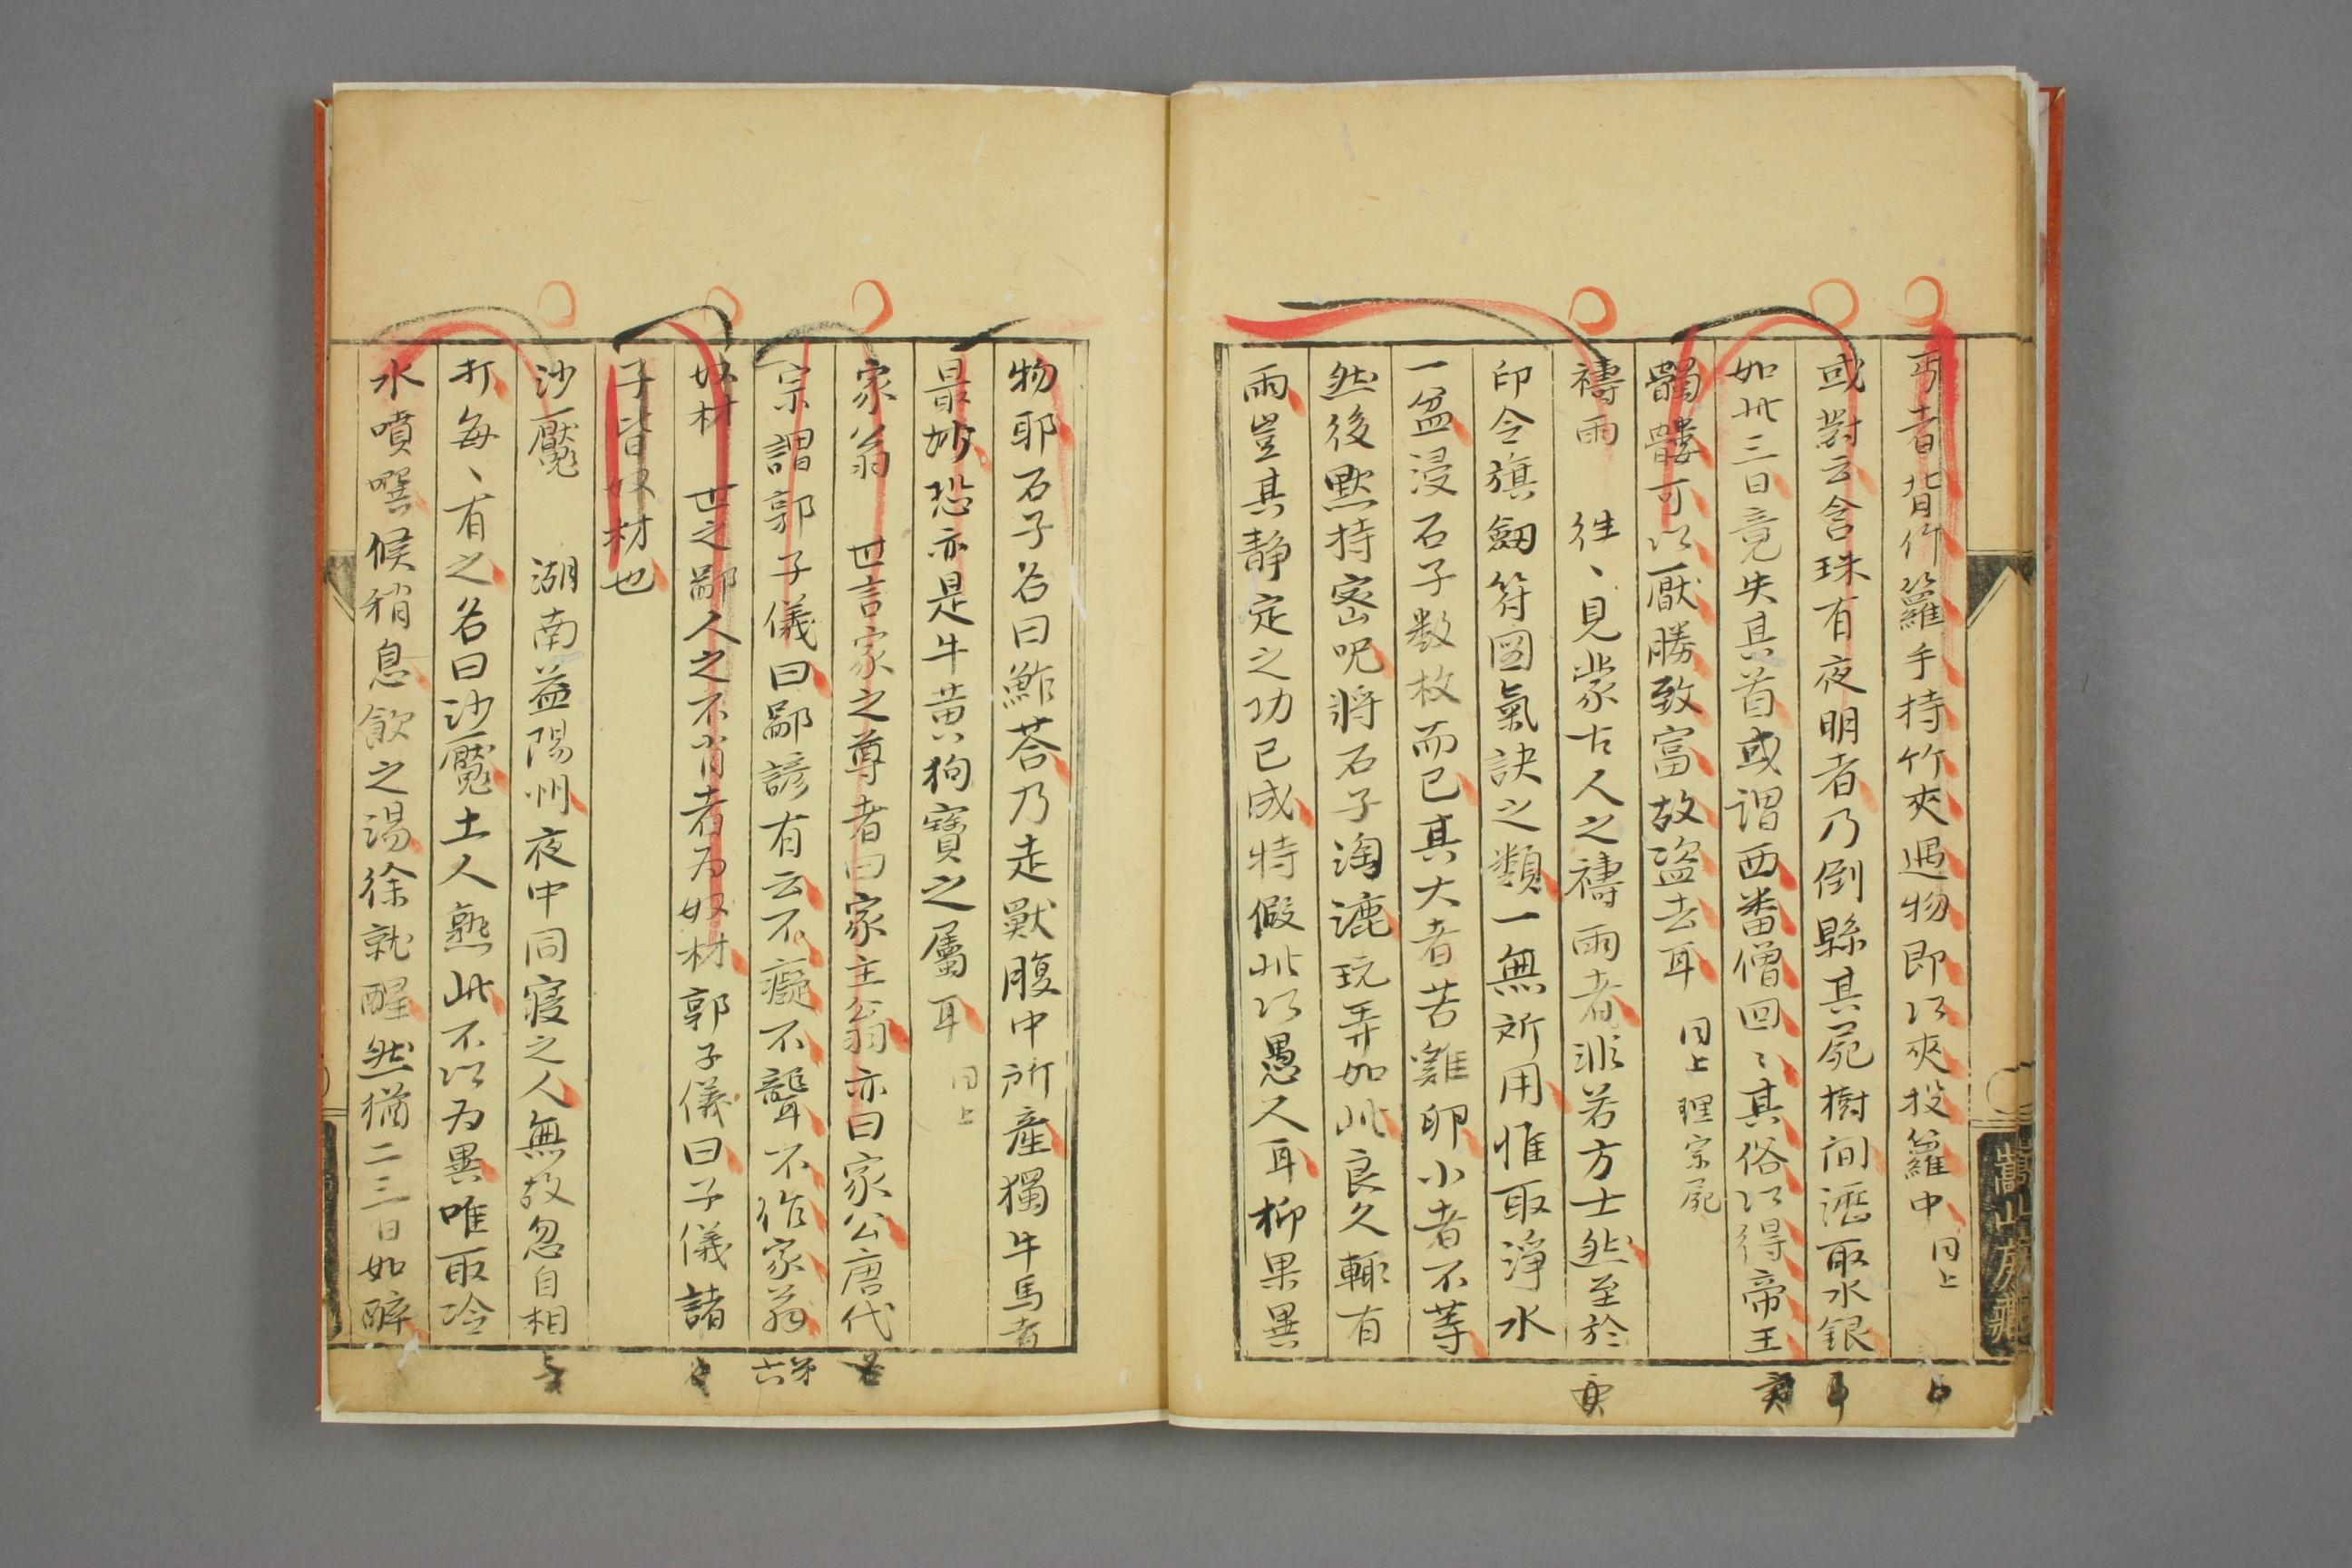 丐者背竹籮手持竹夾遇物即以夾投籮中 同上
或對云含珠有夜明者乃倒縣其屍樹間瀝取水銀
如此三日竟失其首或謂西番僧回〻其俗以得帝王
髑髏可以厭勝致富故盜去耳 同上 理宗屍
禱雨 往〻見蒙古人之禱雨者非若方士然至於
印令旗劔符圖氣訣之類一無所用惟取淨水
一盆浸石子數枚而已其大者若雞卵小者不等
然後默持密呪將石子淘漉玩弄如此良久輒有
雨豈其静定之功已成特假此以愚人耳抑果異
物耶石子名曰鮓荅乃走獸腹中所產獨牛馬者
最妙恐亦是牛黄狗寶之屬耳 同上
家翁 世言家之尊者曰家主翁亦曰家公唐代
宗謂郭子儀曰鄙諺有云不癡不聾不作家翁
奴材 世之鄙人之不肖者为奴材郭子儀曰子儀諸
子皆奴材也
沙魘 湖南益陽州夜中同寢之人無故忽自相
打每〻有之名曰沙魘土人熟此不以为異唯取冷
水噴噀候稍息飲之湯徐就醒然猶二三日如醉
嵩山
亥
六